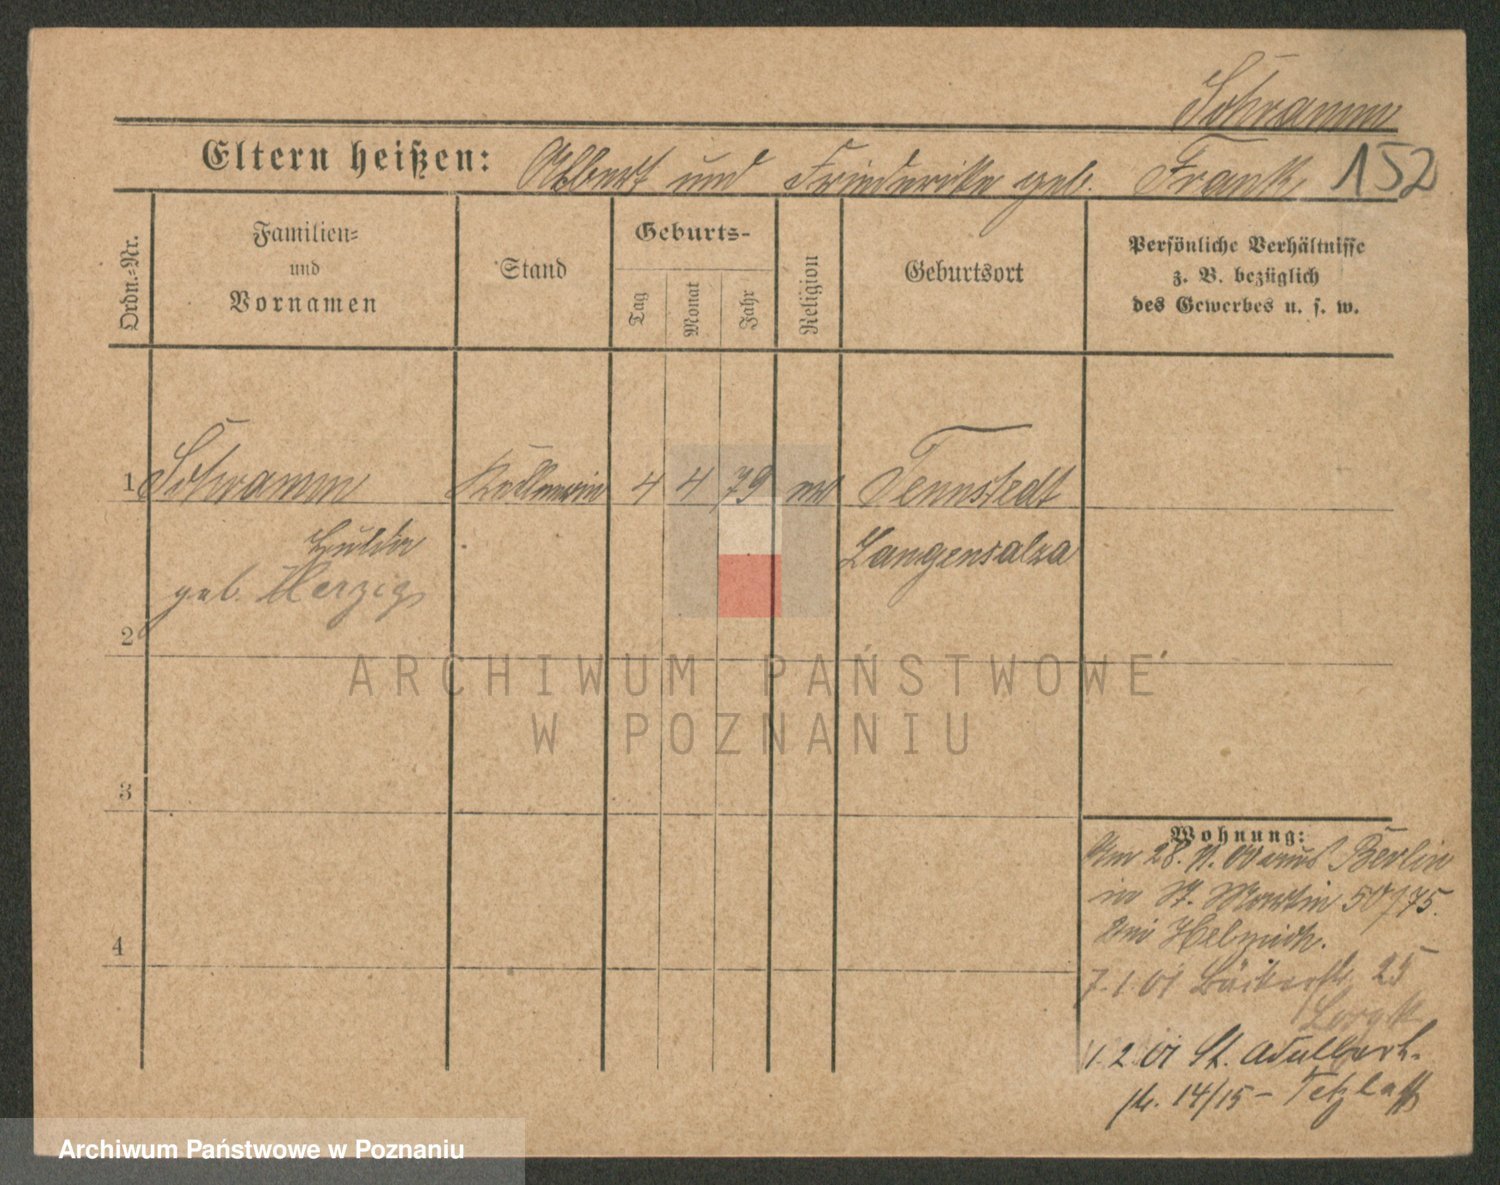 Schramm
Eltern heißen: Albert und Friederike geb. Frank 152
Ordn.-Nr.
Familien-
und
Vornamen
Stand
Geburts-
Tag
Monat
Jahr
Religion
Geburtsort
Persönliche Verhältnisse
z. B. bezüglich
des Gewerbes u. s. w.
1 Schramm Kellnerin 4 4 79 ev Tennstedt
Hulda Langensalza
geb. Herzig
2
3
4
ARCHIWUM PAŃSTWOWE
W POZNANIU
Wohnung:
Am 28. 11. 00 aus Berlin
in St. Martin 50/75.
bei
7. 1. 01 Bäckerstr. 25
1. 2. 01 St. Adalbert-
str. 14/15 – Tetzlaff
Archiwum Państwowe w Poznaniu